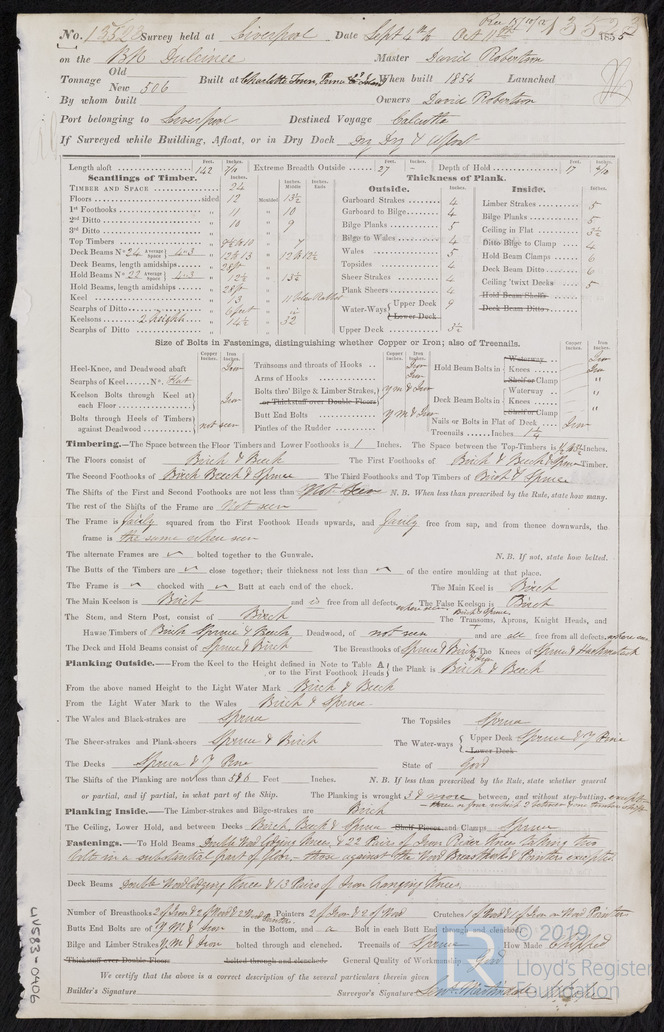 No. 13522 Survey held at Liverpool Date Sept 4th to Oct 11th 1855
Rec 15/10/55 13523
on the Bk Dulcinee Master David Robertson
Tonnage Old New 506 Built at Charlotte Town, Prince Ed Island When built 1854 Launched
By whom built Owners David Robertson
Port belonging to Liverpool Destined Voyage Calcutta
If Surveyed while Building, Afloat, or in Dry Dock Dry Dg & Afloat
Length aloft 142 Extreme Breadth Outside 27 Depth of Hold 17
Scantlings of Timber. Thickness of Plank.
Timber and Space 24 Outside. Inside.
Floors sided 12 Moulded 13½ Garboard Strakes 4 Limber Strakes 5
1st Foothooks 11 10 Garboard to Bilge 4 Bilge Planks 5
2nd Ditto 10 9 Bilge Planks 5 Ceiling in Flat 3½
3rd Ditto Bilge to Wales 4 Ditto Bilge to Clamp 4
Top Timbers 7 Wales 5 Hold Beam Clamps 6
Deck Beams No. 24 Average Space 4.3 Topsides 4 Deck Beam Ditto 6
Deck Beams, length amidships Sheer Strakes 4 Ceiling 'twixt Decks 5
Hold Beams No. 22 Average Space 4.3 12½ 13½ Plank Sheers 4 Hold Beam Shelfs
Hold Beams, length amidships Water-Ways Upper Deck 9 Lower Deck Deck Beam Ditto
Keel 13 Upper Deck 3½
Scarphs of Ditto 6 feet
Keelsons 2 heights 14½ 32
Scarphs of Ditto
Size of Bolts in Fastenings, distinguishing whether Copper or Iron; also of Treenails.
Heel-Knee, and Deadwood abaft Iron Transoms and throats of Hooks Iron Hold Beam Bolts in Waterway Iron
Scarphs of Keel No. Flat Arms of Hooks Iron Knees Iron
Keelson Bolts through Keel at each Floor Iron Bolts thro' Bilge & Limber Strakes, or Thickstuff over Double Floors Y M & Iron Shelf or Clamp "
Butt End Bolts Y M & Iron Deck Beam Bolts in Waterway Knees Shelf or Clamp "
Bolts through Heels of Timbers against Deadwood not seen Pintles of the Rudder Nails or Bolts in Flat of Deck Iron
Treenails Inches 1¼
Timbering.—The Space between the Floor Timbers and Lower Foothooks is 1 Inches. The Space between the Top-Timbers is Inches.
The Floors consist of Birch & Beech The First Foothooks of Birch & Beech & Spruce Timber.
The Second Foothooks of Birch Beech & Spruce The Third Foothooks and Top Timbers of Birch & Spruce
The Shifts of the First and Second Foothooks are not less than Not Seen N. B. When less than prescribed by the Rule, state how many.
The rest of the Shifts of the Frame are Not seen
The Frame is fairly squared from the First Foothook Heads upwards, and fairly free from sap, and from thence downwards, the
frame is the same where seen
The alternate Frames are bolted together to the Gunwale. N. B. If not, state how bolted.
The Butts of the Timbers are close together; their thickness not less than of the entire moulding at that place.
The Frame is chocked with Butt at each end of the chock. The Main Keel is Birch
The Main Keelson is Birch and is free from all defects. where seen The False Keelson is Birch
The Stem, and Stern Post, consist of Birch The Transoms, Aprons, Knight Heads, and Birch & Spruce
Hawse Timbers of Birch Spruce & Beech Deadwood, of not seen and are all free from all defects. where seen
The Deck and Hold Beams consist of Spruce & Birch The Breasthooks of Spruce & Birch & Iron The Knees of Spruce & Hackmatack
Planking Outside.—From the Keel to the Height defined in Note to Table A or to the First Foothook Heads the Plank is Birch & Beech
From the above named Height to the Light Water Mark Birch & Beech
From the Light Water Mark to the Wales Birch & Spruce
The Wales and Black-strakes are Spruce The Topsides Spruce
The Sheer-strakes and Plank-sheers Spruce & Birch The Water-ways Upper Deck Spruce & Y Pine Lower Deck
The Decks Spruce & Y Pine State of Good
The Shifts of the Planking are not less than 5 & 6 Feet Inches. N. B. If less than prescribed by the Rule, state whether general
or partial, and if partial, in what part of the Ship. The Planking is wrought 3 & more between, and without step-butting, excepting
three or four which 2 between
Planking Inside.—The Limber-strakes and Bilge-strakes are Birch
The Ceiling, Lower Hold, and between Decks Birch, Beech & Spruce Shelf Pieces and Clamps Spruce
Fastenings.—To Hold Beams Double Wood Lodging Knees & 22 Pairs of Iron Rider Knees taking two
bolts in a substantial part of floor. those against the Wood Breasthooks & Pointers excepted
Deck Beams Double Wood Lodging Knees & 13 Pairs of Iron Hanging Knees.
Number of Breasthooks 2 of Iron & 2 of Wood Pointers 2 of Iron & 2 of Wood Crutches 1 of Wood & 1 of Iron on Wood Pointer
Butts End Bolts are of Y M & Iron in the Bottom, and a Bolt in each Butt End through and clenched.
Bilge and Limber Strakes Y M & Iron bolted through and clenched. Treenails of Spruce How Made Chipped
Thickstuff over Double Floors bolted through and clenched. General Quality of Workmanship Good
We certify that the above is a correct description of the several particulars therein given
Builder's Signature Surveyor's Signature
LIV583-0406
© 2019
Lloyd's Register
Foundation